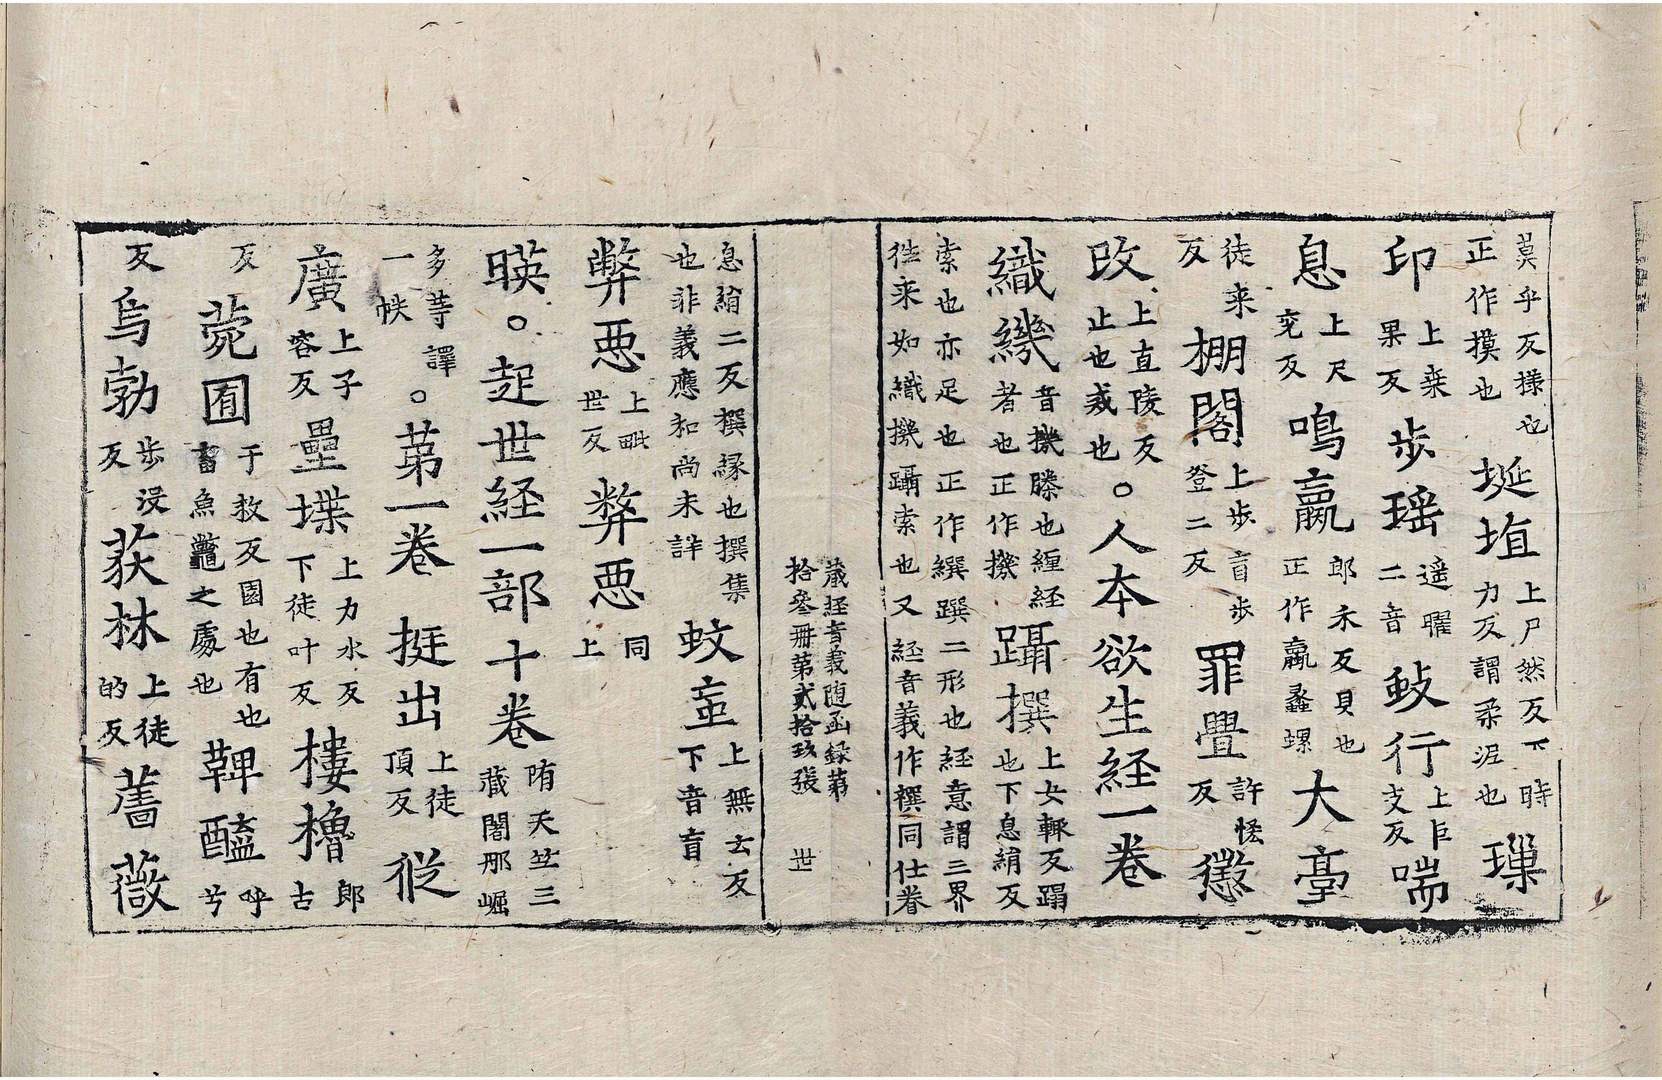 莫乎反㨾也正作摸也埏埴上尸然反下時力反謂柔泥也璅
印上桒果反步瑶遥曜二音鼓行上巨支反喘
息上尺兖反鳴蠃郎禾反貝也正作蠃蠡螺大臺
徒来反棚閣上步盲步登二反罪舋許慭反懲
改上直陵反止也戒也。人本欲生経一卷
織機音機縢也緾経者也正作機躡撰上女輒反蹋也下息絹反
索也亦足也正作繏蹼二形也経意謂三界徃来如織機躡索也又経音義作撰同仕眷
藏経音義随函録第拾叄冊第貳拾玖張 世
息絹二反撰縁也撰集也非義應和尚未詳蚊䖟上無云反下音盲
弊惡上毗世反弊惡同上
暎。起世経一部十卷陏天竺三藏闍那崛
多等譯一帙。苐一卷 挺出上徒頂反從
廣上子容反壘堞上力水反下徒叶反樓櫓郎古
反菀囿于救反園也有也畜魚鼈之處也鞞醯呼兮
反烏勃步没反荻林上徒的反薔薇